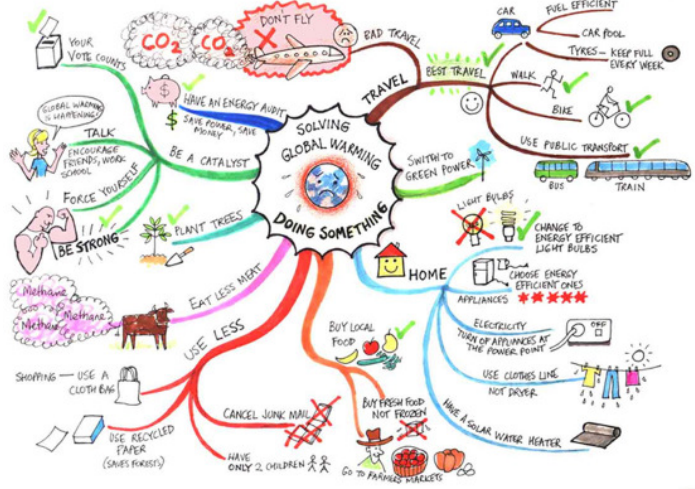 SOLVING
GLOBAL WARMING
DOING SOMETHING
TRAVEL
BAD TRAVEL
DON'T FLY
CO2
CO2
BEST TRAVEL
CAR
FUEL EFFICIENT
CAR POOL
TYRES – KEEP FULL
EVERY WEEK
WALK
BIKE
USE PUBLIC TRANSPORT
BUS
TRAIN
SWITH TO
GREEN POWER
HOME
LIGHT BULBS
CHANGE TO
ENERGY EFFICIENT
LIGHT BULBS
APPLIANCES
CHOOSE ENERGY
EFFICIENT ONES
ELECTRICITY
TURN OF APPLIANCES AT
THE POWER POINT
OFF
USE CLOTHES LINE
NOT DRYER
HAVE A SOLAR WATER HEATER
BUY LOCAL
FOOD
BUY FRESH FOOD
NOT FROZEN
GO TO FARMERS MARKETS
USE LESS
SHOPPING – USE A
CLOTH BAG
USE RECYCLED
PAPER
(SAVES FORESTS)
CANCEL JUNK MAIL
HAVE
ONLY 2 CHILDREN
EAT LESS MEAT
Methane
Methane
PLANT TREES
BE A CATALYST
YOUR
VOTE COUNTS
TALK
ENCOURAGE
FRIENDS, WORK
SCHOOL
GLOBAL WARMING
IS HAPPENING!
FORCE YOURSELF
BE STRONG
HAVE AN ENERGY AUDIT
SAVE POWER, SAVE
MONEY
$